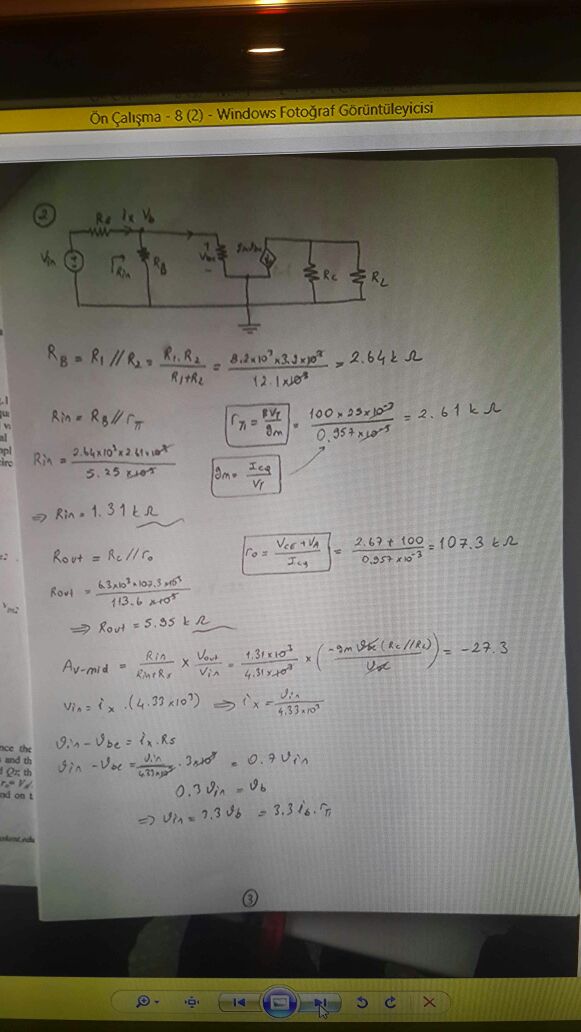 Ön Çalışma - 8 (2) - Windows Fotoğraf Görüntüleyicisi
2
Rs ix Vb
Vin Rin RB Vbe gmVbe RC RL
RB = R1 // R2 = R1.R2 / R1+R2 = 8.2x10³x3.9x10³ / 12.1x10³ = 2.64k Ω
Rin = RB // rπ
rπ = βVT / gm = 100 x 25x10⁻³ / 0.957x10⁻³ = 2.61 k Ω
Rin = 2.64x10³x2.61x10³ / 5.25x10³
gm = ICQ / VT
⇒ Rin = 1.31 k Ω
Rout = RC // ro
ro = VCE + VA / ICQ = 2.67 + 100 / 0.957x10⁻³ = 107.3 k Ω
Rout = 6.3x10³x107.3x10³ / 113.6x10³
⇒ Rout = 5.95 k Ω
Av-mid = Rin / Rin+Rs x Vout / Vin = 1.31x10³ / 4.31x10³ x ( -gm Vbe (RC // RL) / Vbe ) = -27.3
Vin = ix.(4.33x10³) ⇒ ix = Vin / 4.33x10³
Vin - Vbe = ix.Rs
Vin - Vbe = Vin / 4.33x10³ . 3x10³ = 0.7 Vin
0.3 Vin = Vb
⇒ Vin = 3.3 Vb = 3.3 ib.rπ
3